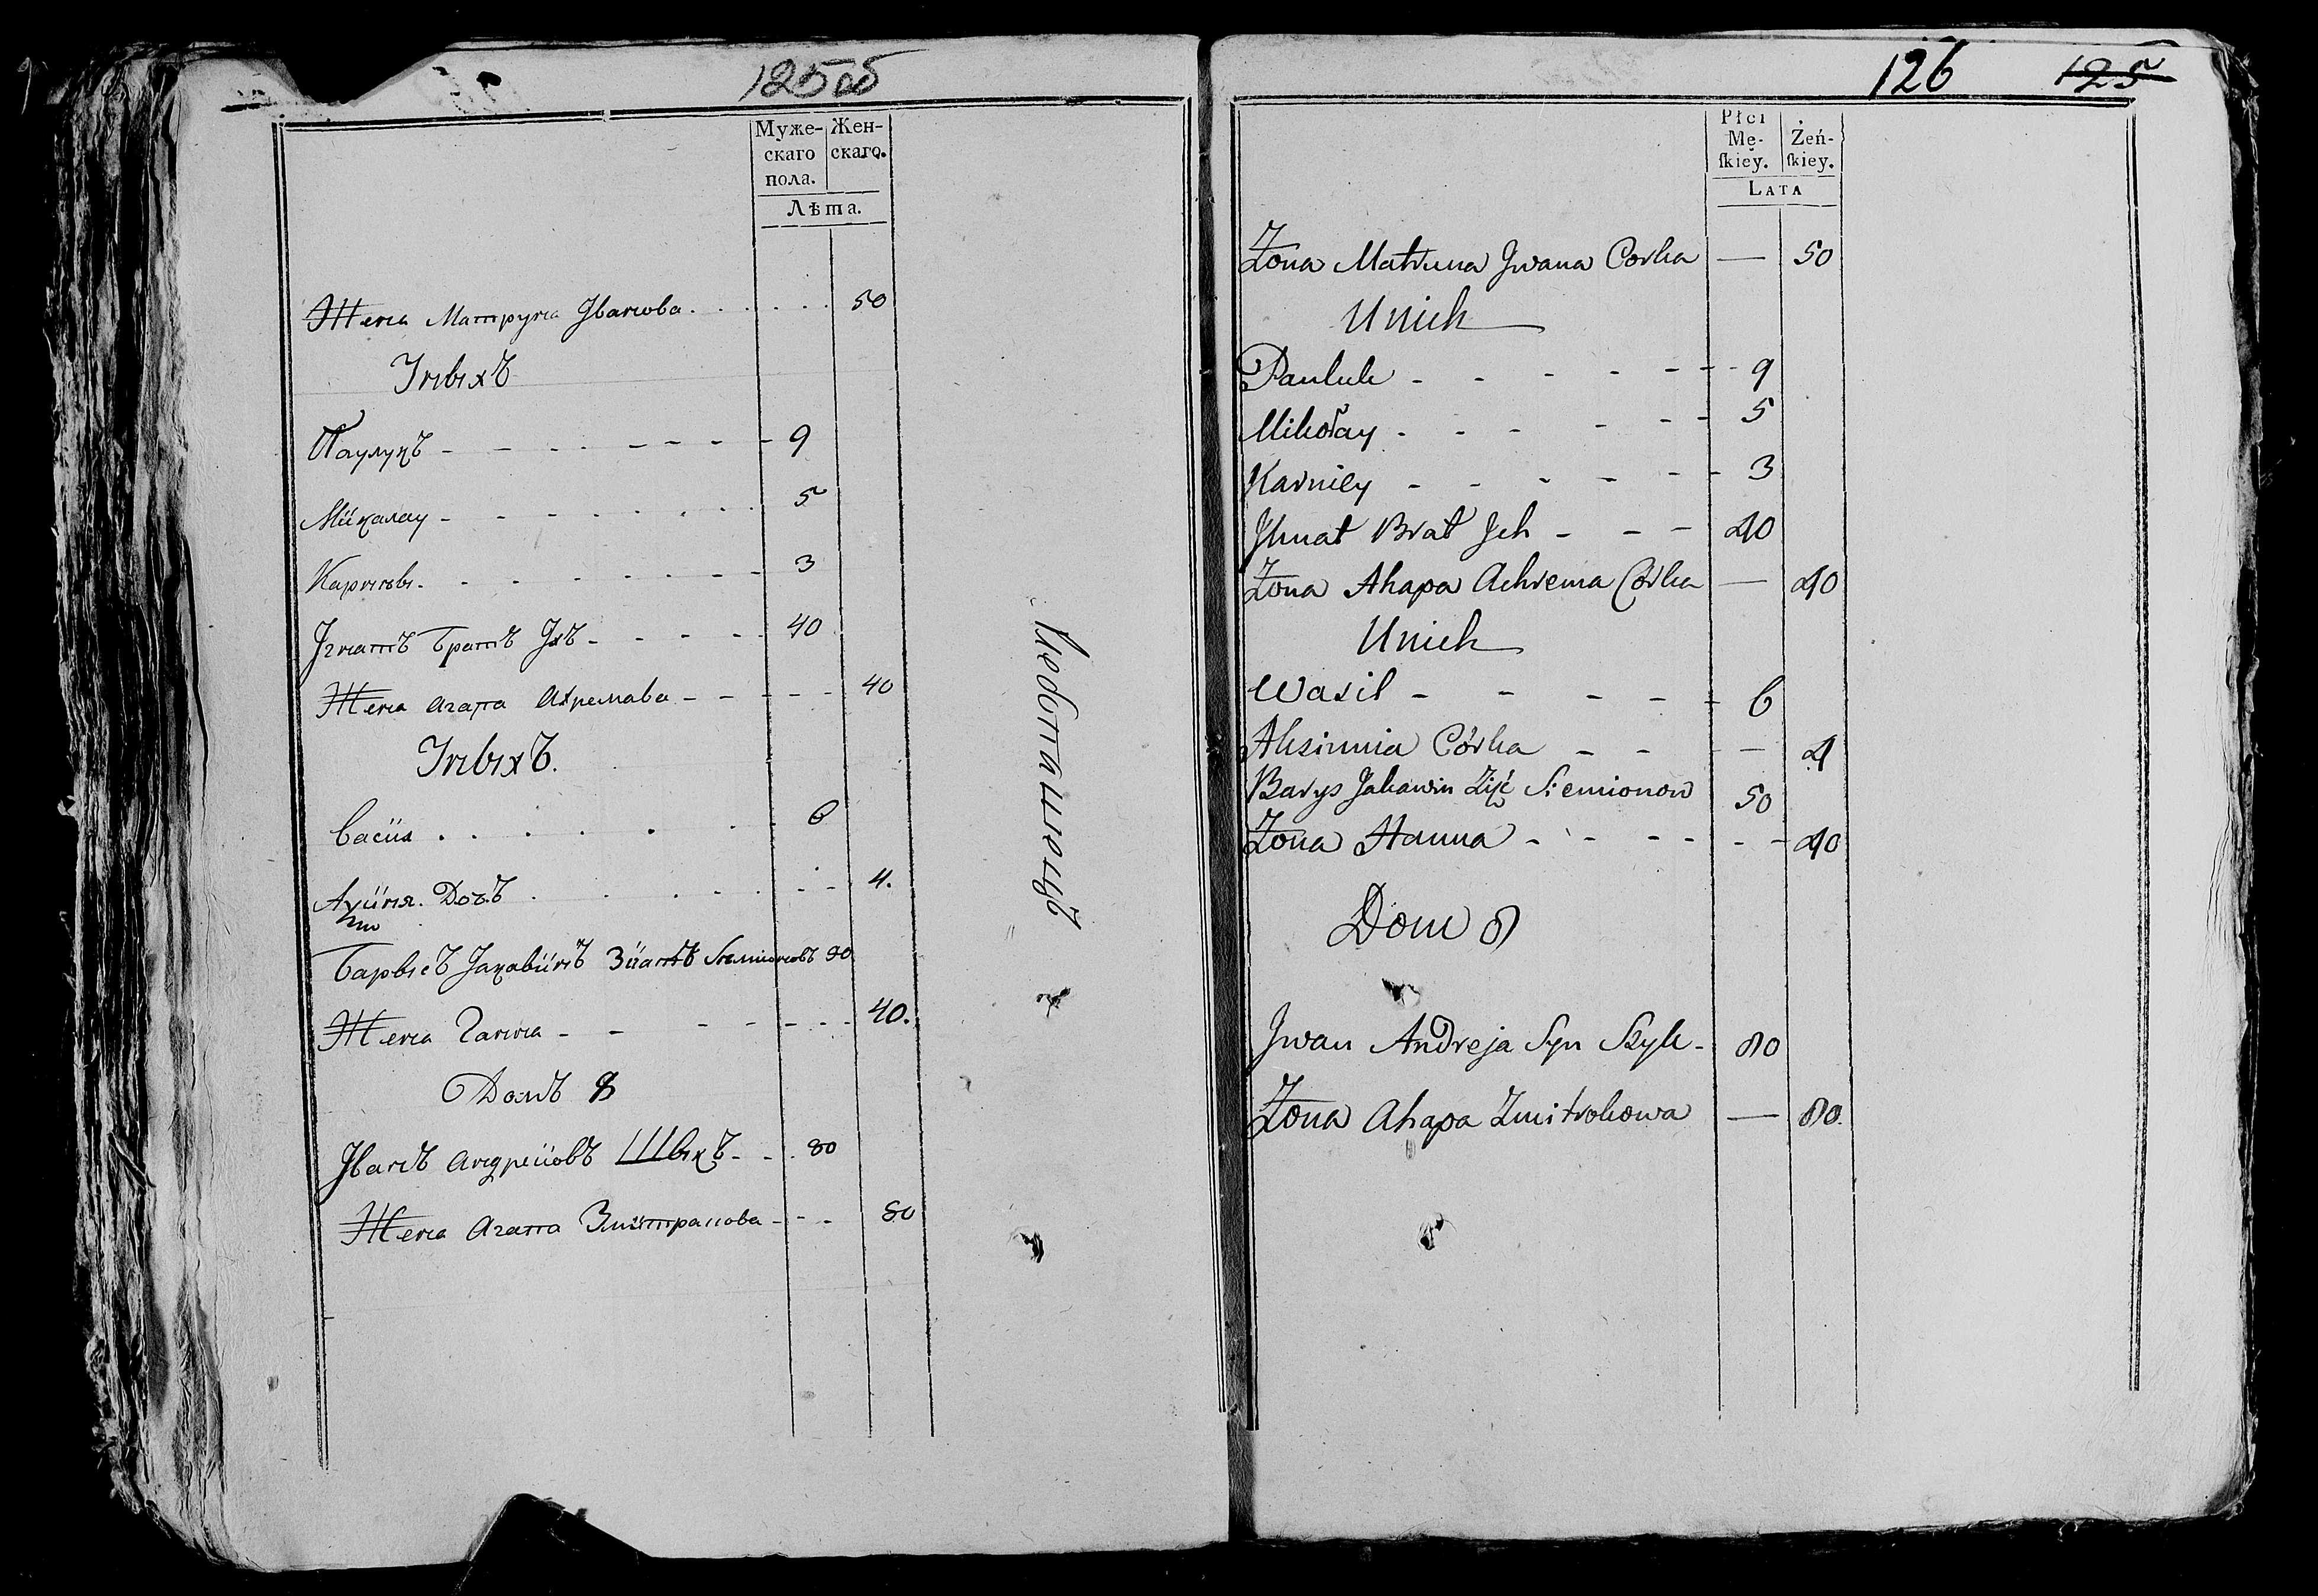 125об
Муже-
скаго
пола.
Жен-
скаго.
Лѣта.
Жена Матруна Іванова 50
Іныхъ
Паулукъ 9
Микалау 5
3
Ігнатъ Братъ Іхъ 40
Жена Агапа Ахремава 40
Іныхъ.
Васил 6
Дочъ 4.
Барысъ Јакавинъ Зиать
Жена Ганна 40.
Домъ 8
Іванъ Андреиовъ Шыкъ 80
Жена Агапа Змитракова 80
126 125
Płci
Mę-
ſkiey.
Żeń-
ſkiey.
Lata
Żona Matruna Jwana Corka — 50
Unich
Pauluk 9
Mikołay 5
Karniey 3
Jhnat Brat Jch 40
Żona Ahapa Achrema Córka — 40
Unich
Wasil 6
Aksinnia Córka — 4
Barys Jakawin Zięć Siemionow 50
Żona Hanna 40
Dom 8
Jwan Andreja Syn Szyk 80
Żona Ahapa Zmitrokowa — 80.